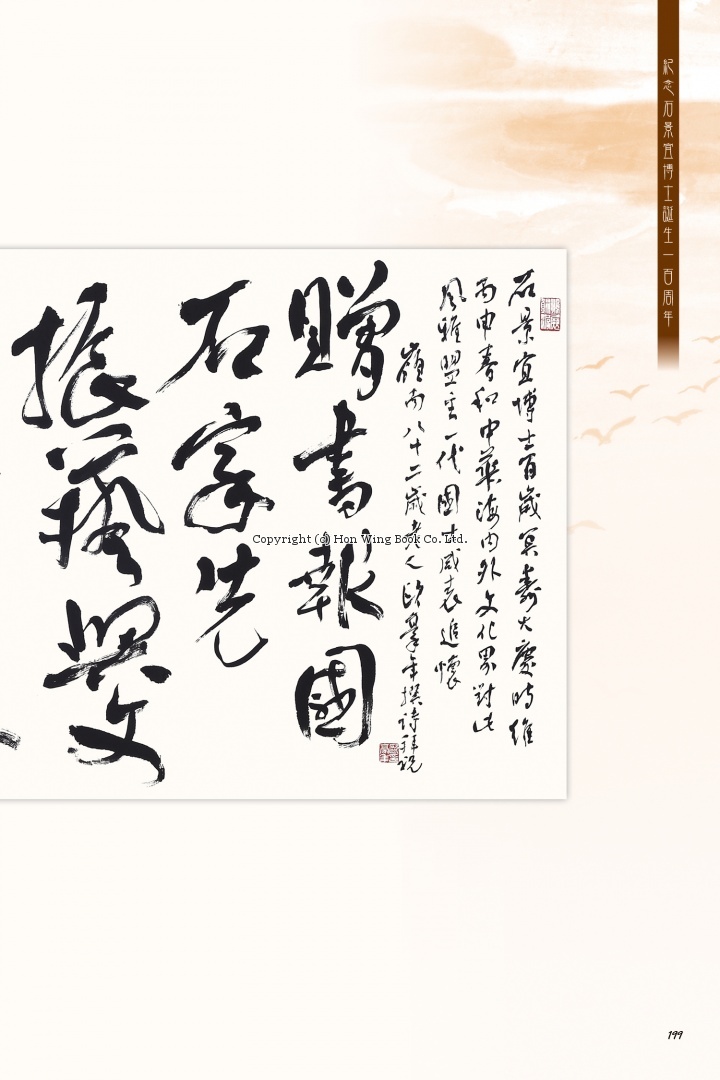 紀念石景宜博士誕生一百周年
石景宜博士百歲冥壽大慶時維
丙申春和中華海內外文化界對此
風雅盟主一代國士咸表追懷
嶺南八十二歲老人歐羣年撰詩拜祝
贈書報國
石家先
振藝興文
Copyright (c) Hon Wing Book Co.Ltd.
199